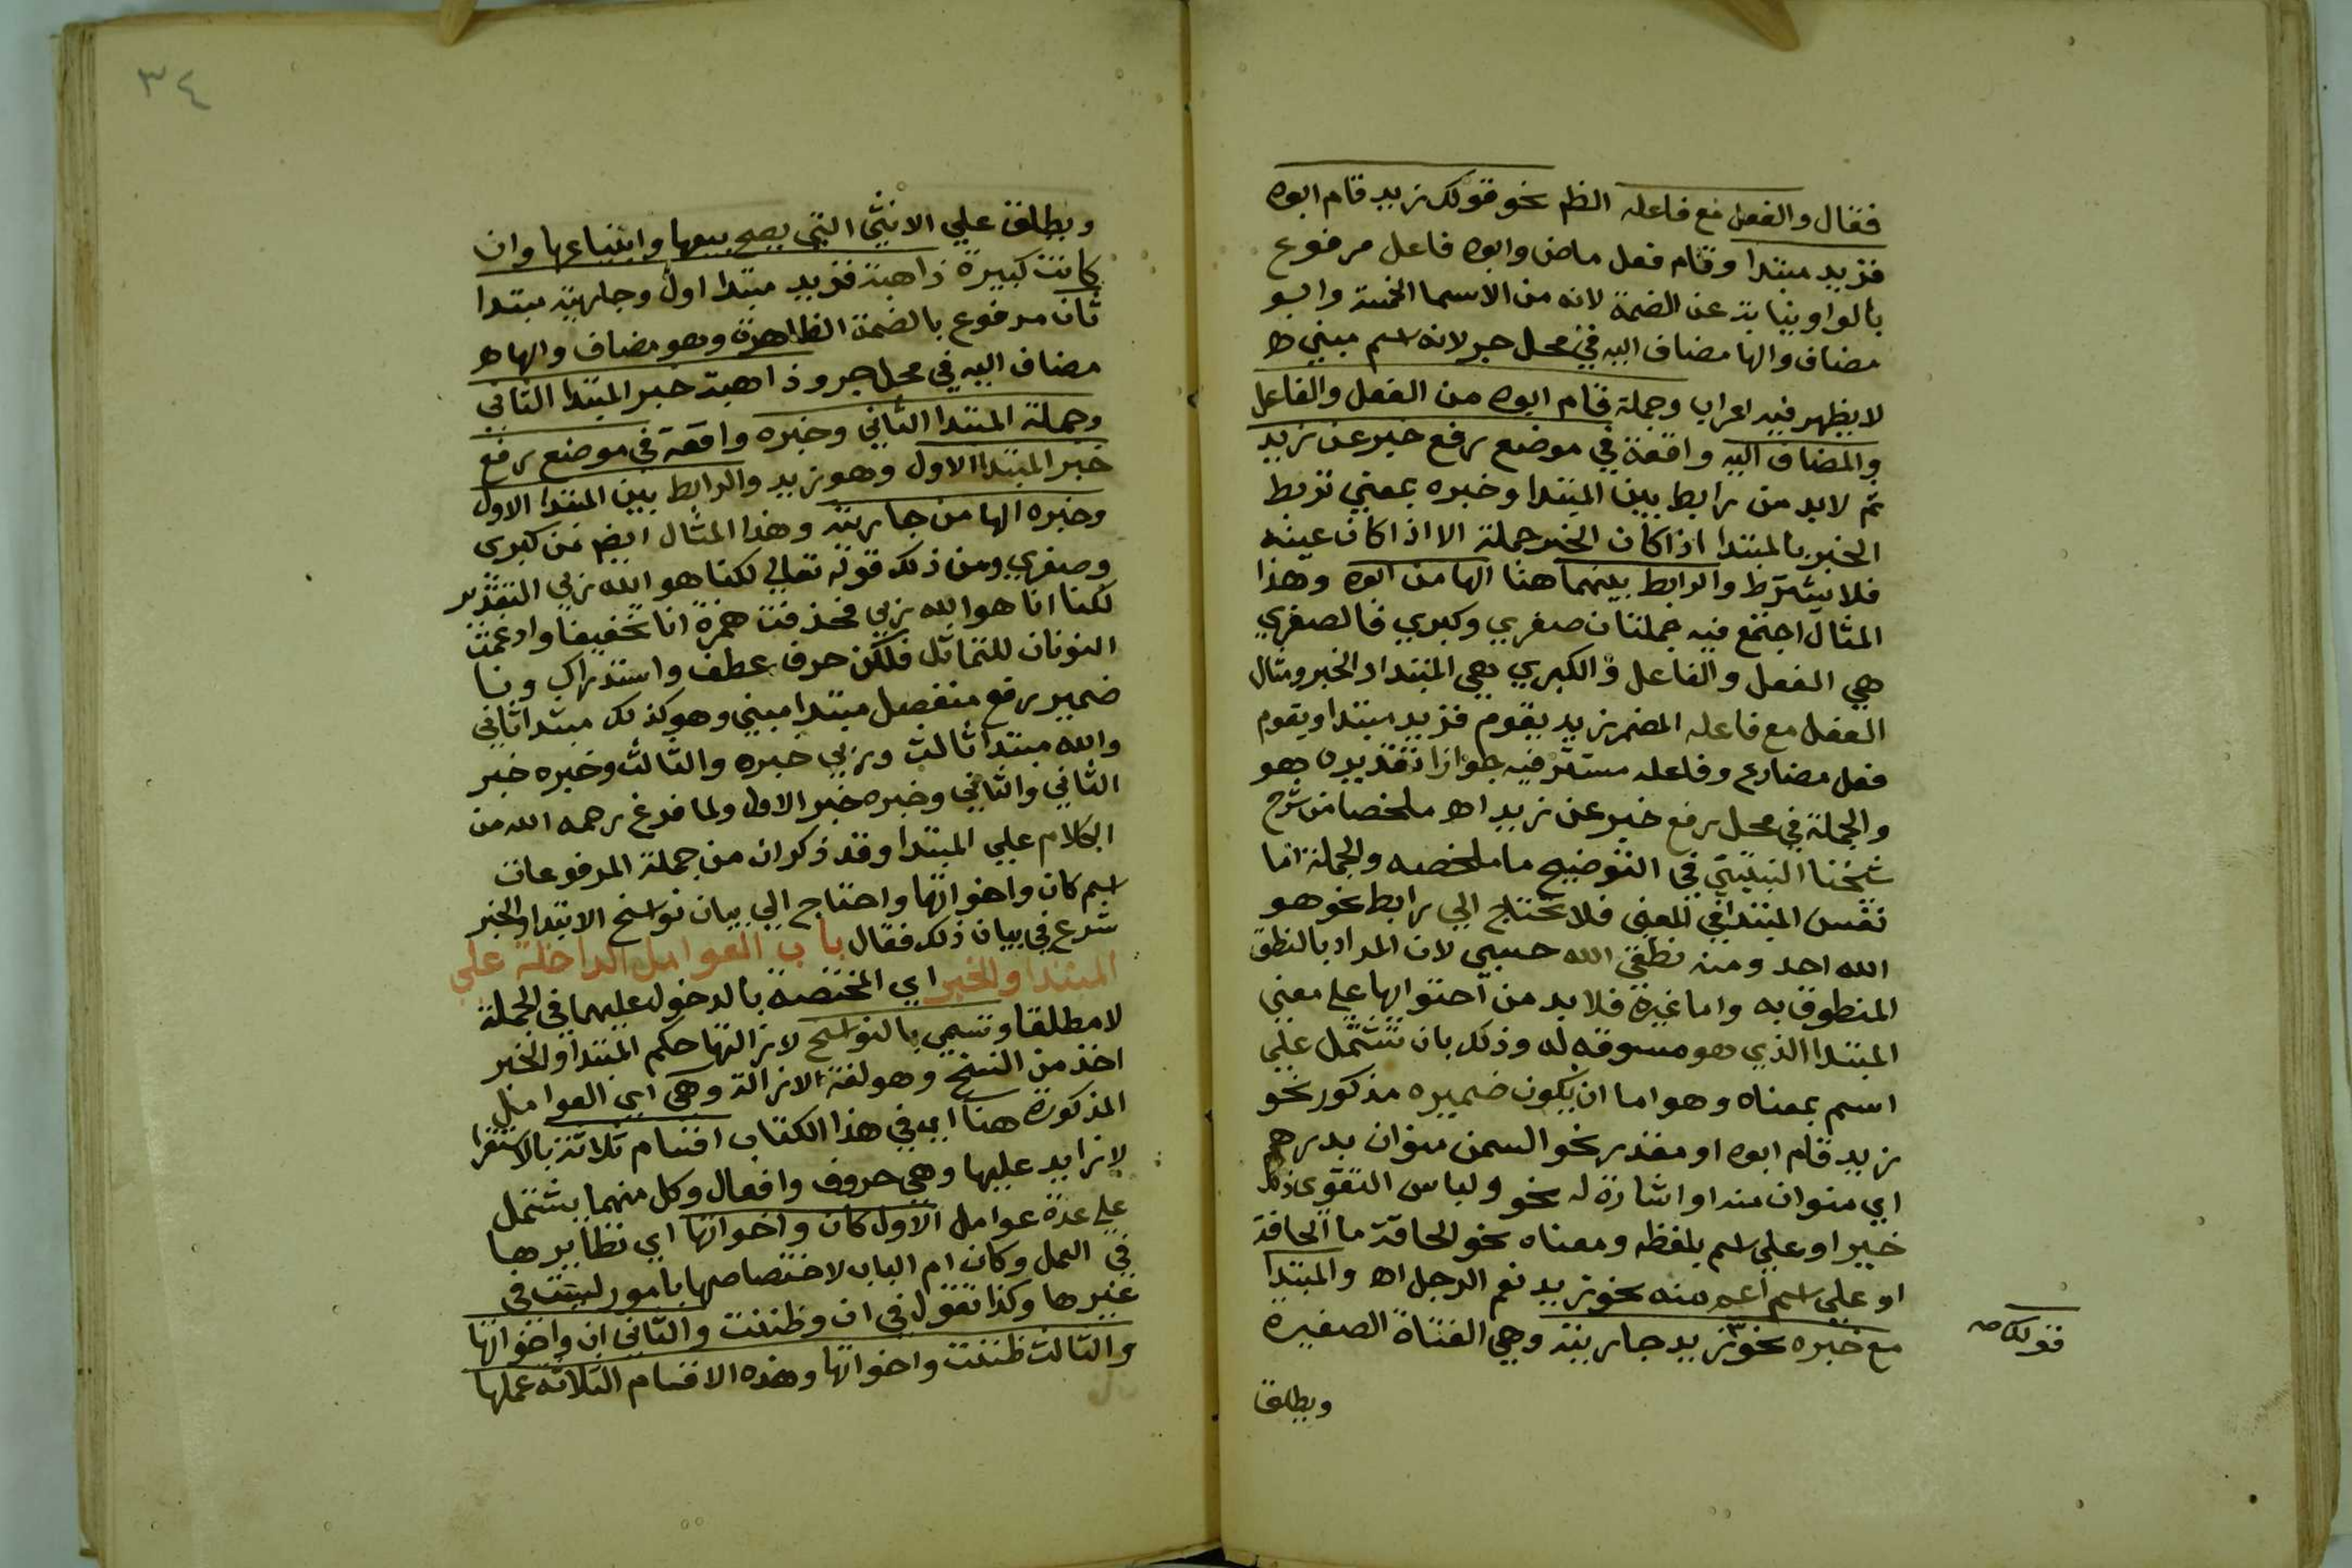 فقال والفعل مع فاعله الظم نحو قولك زيد قام ابوه
فزيد مبتدا وقام فعل ماض وابوه فاعل مرفوع
بالواو نيابة عن الضمة لانه من الاسما الخمسة وابو
مضاف والها مضاف اليه في محل جر لانه اسم مبني ه
لا يظهر فيه اعراب وجملة قام ابوه من الفعل والفاعل
والمضاف اليه واقعة في موضع رفع خبر عن زيد
ثم لابد من رابط بين المبتدا وخبره بمعني تربط
الخبر بالمبتدا اذا كان الخبر جملة الا اذا كان عينه
فلا يشترط والرابط بينهما هنا الها من ابوه وهذا
المثال اجتمع فيه جملتان صغري وكبري فالصغري
هي الفعل والفاعل والكبري هي المبتدا والخبر ومثال
الفعل مع فاعله المضمر زيد يقوم فزيد مبتدا ويقوم
فعل مضارع وفاعله مستتر فيه جوازا تقديره هو
والجملة في محل رفع خبر عن زيد اه ملخصا من شرح
شيخنا النبتيتي في التوضيح ما ملخصه والجملة اما
نفس المبتدا في المعني فلا تحتاج الي رابط نحو هو
الله احد ومنه نطقي الله حسبي لان المراد بالنطق
المنطوق به واما غيره فلا بد من احتوايها علي معني
المبتدا الذي هو مسوقه له وذلك بان تشتمل علي
اسم بمعناه وهو اما ان يكون ضميره مذكور نحو
زيد قام ابوه او مقدر نحو السمن منوان بدرهم
اي منوان منه او اشارة له نحو ولباس التقوي ذلك
خير او علي اسم بلفظه ومعناه نحو الحاقة ما الحاقة
او علي اسم اعم منه نحو زيد نعم الرجل اه والمبتدا
مع خبره نحو زيد جاريته وهي الفتاة الصغيرة
قولك صه
ويطلق
٣٤
ويطلق علي الانثي التي يصح بيعها وابتياعها وان
كانت كبيرة ذاهبة فزيد مبتدا اول وجاريته مبتدا
ثان مرفوع بالضمة الظاهرة وهو مضاف والها ه
مضاف اليه في محل جر وذاهبة خبر المبتدا الثاني
وجملة المبتدا الثاني وخبره واقعة في موضع رفع
خبر المبتدا الاول وهو زيد والرابط بين المبتدا الاول
وخبره الها من جاريته وهذا المثال ايضم من كبري
وصغري ومن ذلك قوله تعالي لكنا هو الله ربي التقدير
لكنا انا هو الله ربي فحذفت همزة انا تخفيفا وادغمت
النونان للتماثل فلكن حرف عطف واستدراك ونا
ضمير رفع منفصل مبتدا مبني وهو كذلك مبتدا ثاني
والله مبتدا ثالث وربي خبره والثالث وخبره خبر
الثاني والثاني وخبره خبر الاول ولما فرغ رحمه الله من
الكلام علي المبتدا وقد ذكر ان من جملة المرفوعات
اسم كان واخواتها واحتاج الي بيان نواسخ الابتدا والخبر
شرع في بيان ذلك فقال باب العوامل الداخلة علي
المبتدا والخبر اي المختصة بالدخول عليهما في الجملة
لا مطلقا وتسمي بالنواسخ لازالتها حكم المبتدا والخبر
اخذ من النسخ وهو لغة الازالة وهي اي العوامل
المذكورة هنا اي في هذا الكتاب اقسام ثلاثة بالاستقرا
لا زايد عليها وهي حروف وافعال وكل منهما يشتمل
علي عدة عوامل الاول كان واخواتها اي نظايرها
في العمل وكان ام الباب لاختصاصها بامور ليست في
غيرها وكذا نقول في ان وظننت والثاني ان واخواتها
والثالث ظننت واخواتها وهذه الاقسام الثلاثه عملها